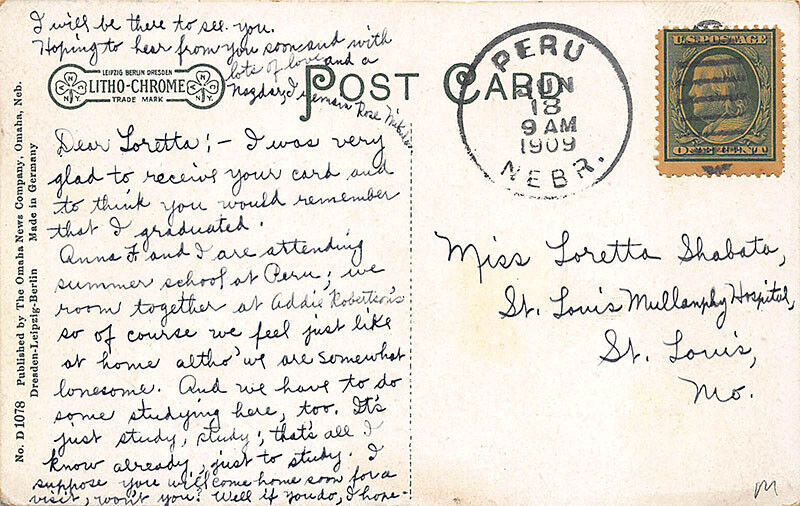 I will be there to see you.
Hoping to hear from you soon and with
lots of love and a
Nazdar, I remain Rose
LEIPZIG BERLIN DRESDEN
LITHO-CHROME
TRADE MARK
POST CARD
PERU
JUN
18
9 AM
1909
NEBR.
U.S. POSTAGE
ONE CENT
Dear Loretta; - I was very
glad to receive your card and
to think you would remember
that I graduated.
Anna F. and I are attending
summer school at Peru; we
room together at Addie Robertson's
so of course we feel just like
at home altho' we are somewhat
lonesome. And we have to do
some studying here, too. It's
just study, study; that's all I
know already, just to study. I
suppose you will come home soon for a
visit, won't you? Well if you do, I hope-
Miss Loretta Shabata,
St. Louis Mullanphy Hospital,
St. Louis,
Mo.
No. D 1078 Published by The Omaha News Company, Omaha, Neb.
Dresden-Leipzig-Berlin Made in Germany